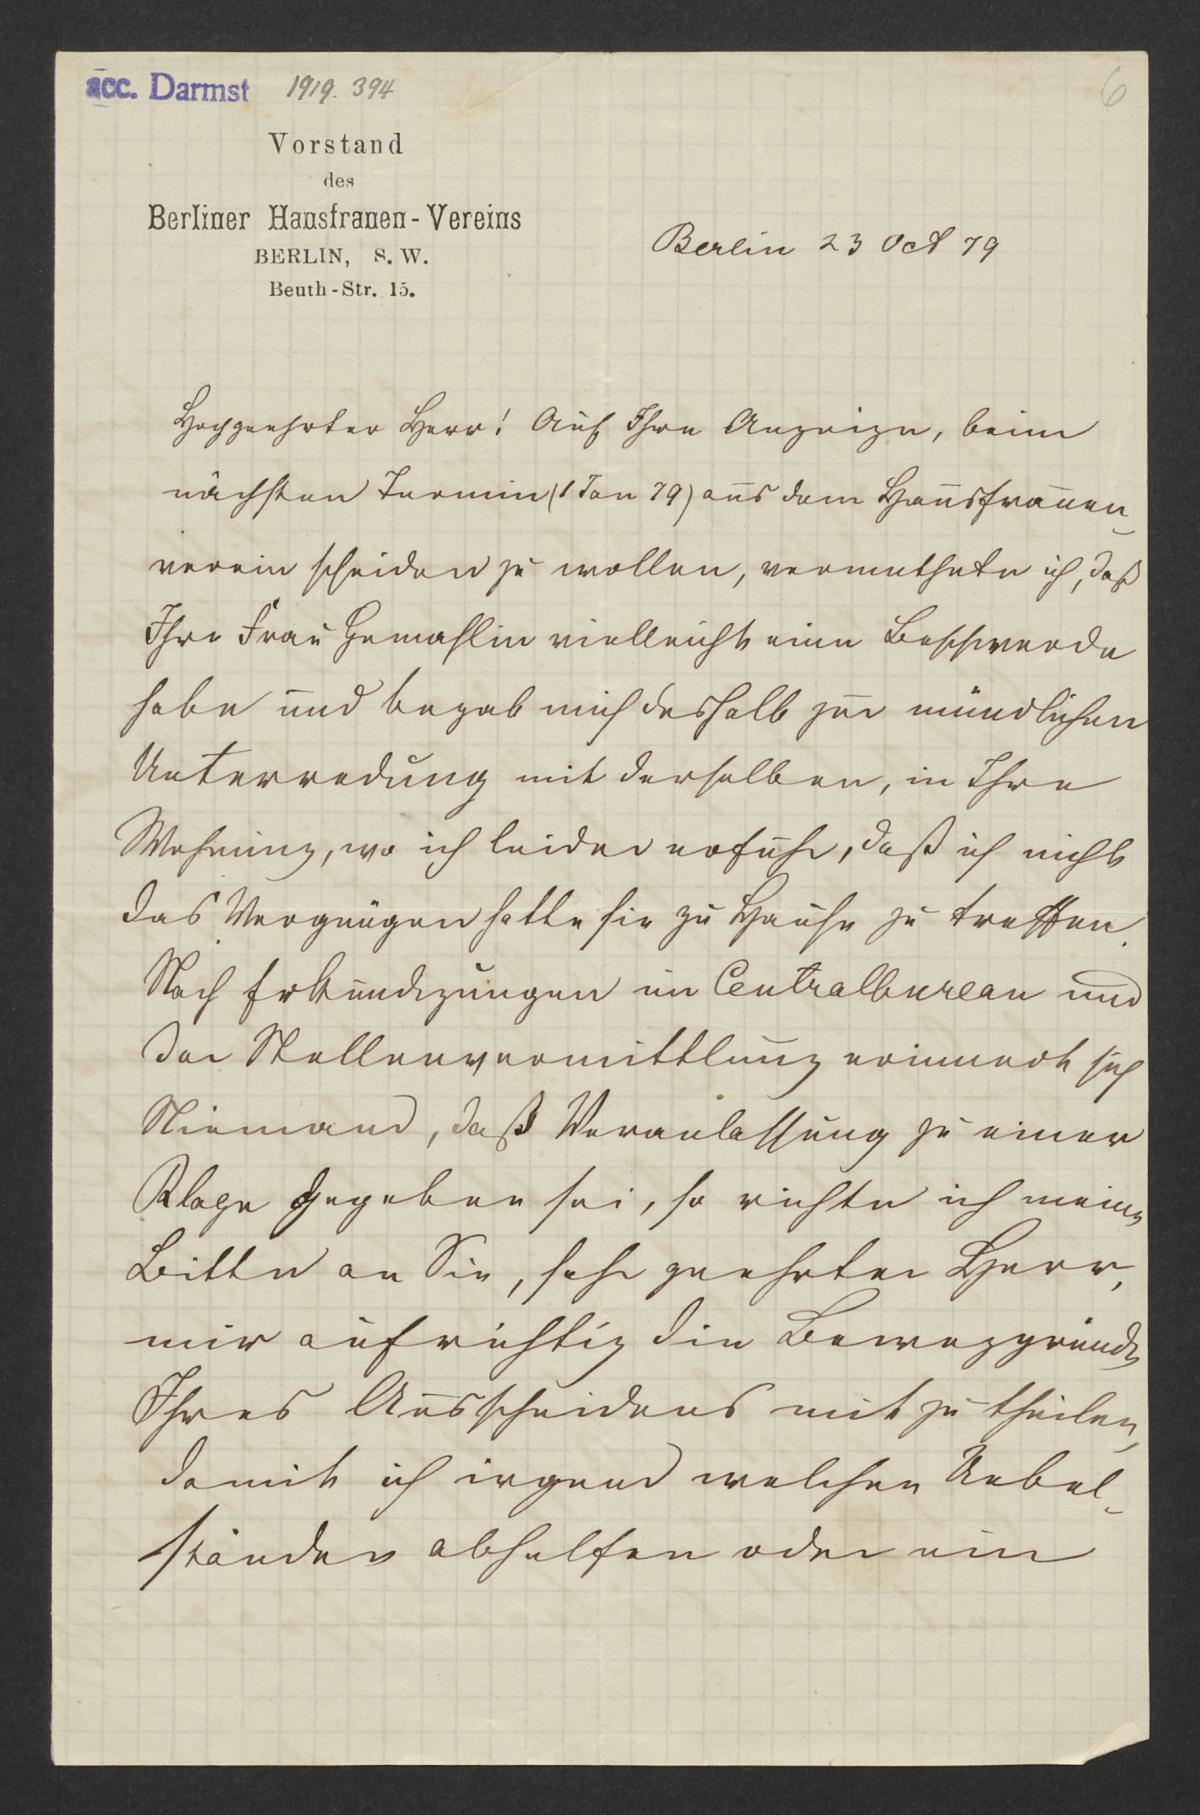 acc. Darmst 1919. 394
6
Vorstand
des
Berliner Hausfrauen-Vereins
BERLIN, S. W.
Beuth-Str. 15.
Berlin 23 Oct 79
Hochgeehrter Herr! Auf Ihre Anzeige, beim
nächsten Termin (1 Jan 79) aus dem Hausfrauen-
verein scheiden zu wollen, vermuthete ich, daß
Ihre Frau Gemahlin vielleicht eine Beschwerde
habe und begab mich deshalb zur mündlichen
Unterredung mit derselben, in Ihre
Wohnung, wo ich leider erfuhr, daß ich nicht
das Vergnügen hatte sie zu Hause zu treffen.
Nach Erkundigungen im Centralbureau und
der Stellenvermittlung erinnert sich
Niemand, daß Veranlassung zu einer
Klage gegeben sei, so richte ich meine
Bitte an Sie, sehr geehrter Herr,
mir aufrichtig die Beweggründe
Ihres Ausscheidens mit zu theilen,
damit ich irgend welchen Uebel-
ständen abhelfen oder ein